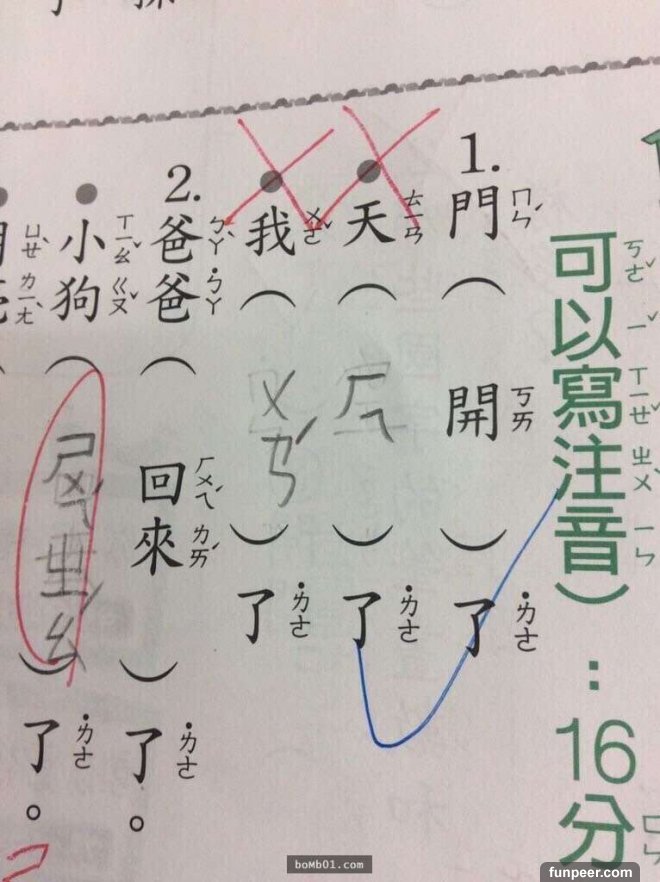 可ㄎㄜˇ以ㄧˇ寫ㄒㄧㄝˇ注ㄓㄨˋ音ㄧㄣ）：16分
1. 門ㄇㄣˊ（開ㄎㄞ）了˙ㄌㄜ
天ㄊㄧㄢ（ㄏㄟ）了˙ㄌㄜ
我ㄨㄛˇ（）了˙ㄌㄜ
2. 爸ㄅㄚˋ爸˙ㄅㄚ（回ㄏㄨㄟˊ來ㄌㄞˊ）了˙ㄌㄜ。
小ㄒㄧㄠˇ狗ㄍㄡˇ（ㄕㄨㄟˋㄓㄠˊ）了˙ㄌㄜ。
ㄩㄝˋㄌㄧㄤˋ（
boMb01.com
funpeer.com